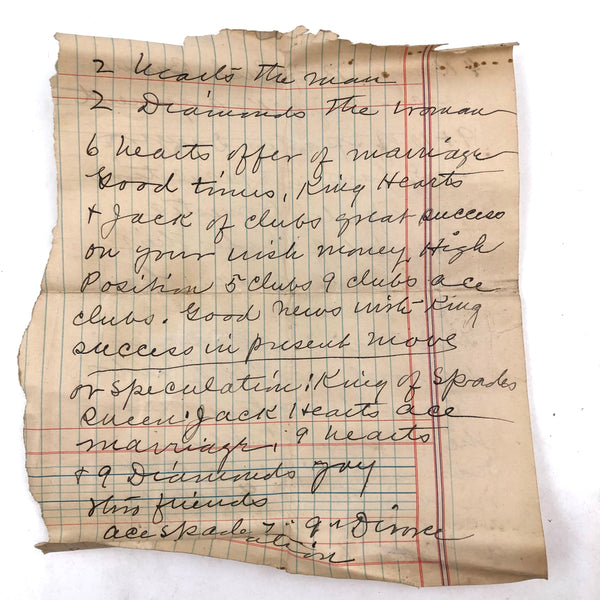 2 Hearts The man
2 Diamonds The woman
6 hearts offer of marriage
Good times, King Hearts
+ Jack of clubs great success
on your wish money High
Position 5 clubs 9 clubs ace
clubs. Good news with King
success in present move
or Speculation, King of Spades
Queen Jack Hearts ace
marriage, 9 hearts
+ 9 Diamonds joy
friends
ace Spades 9 " Divorce